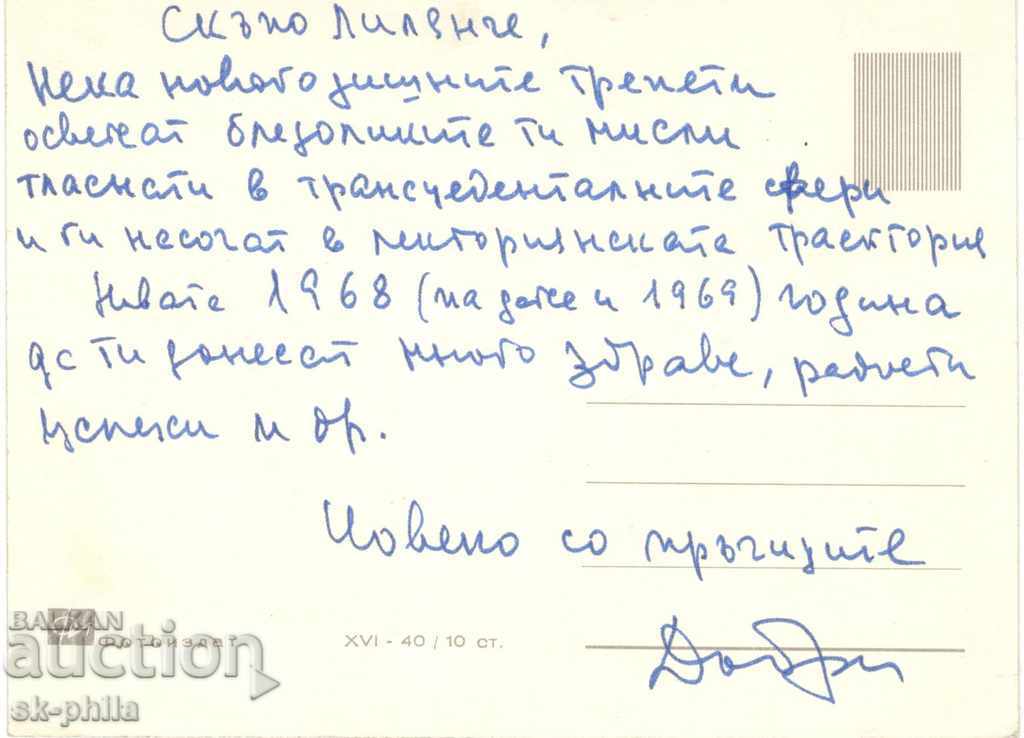 Скъпо Лилянче,
Нека новогодишните трепети
осветят бледоликите ти мисли
тласнати в трансцеденталните сфери
и ги насочат в лекториянската траектория
Нивата 1968 (па даже и 1969) година
да ти донесат много здраве, радости
успехи и др.
Човеко со мръчиците
Фотоиздат
XVI - 40 / 10 ст.
BALKAN
auction
sk-philla